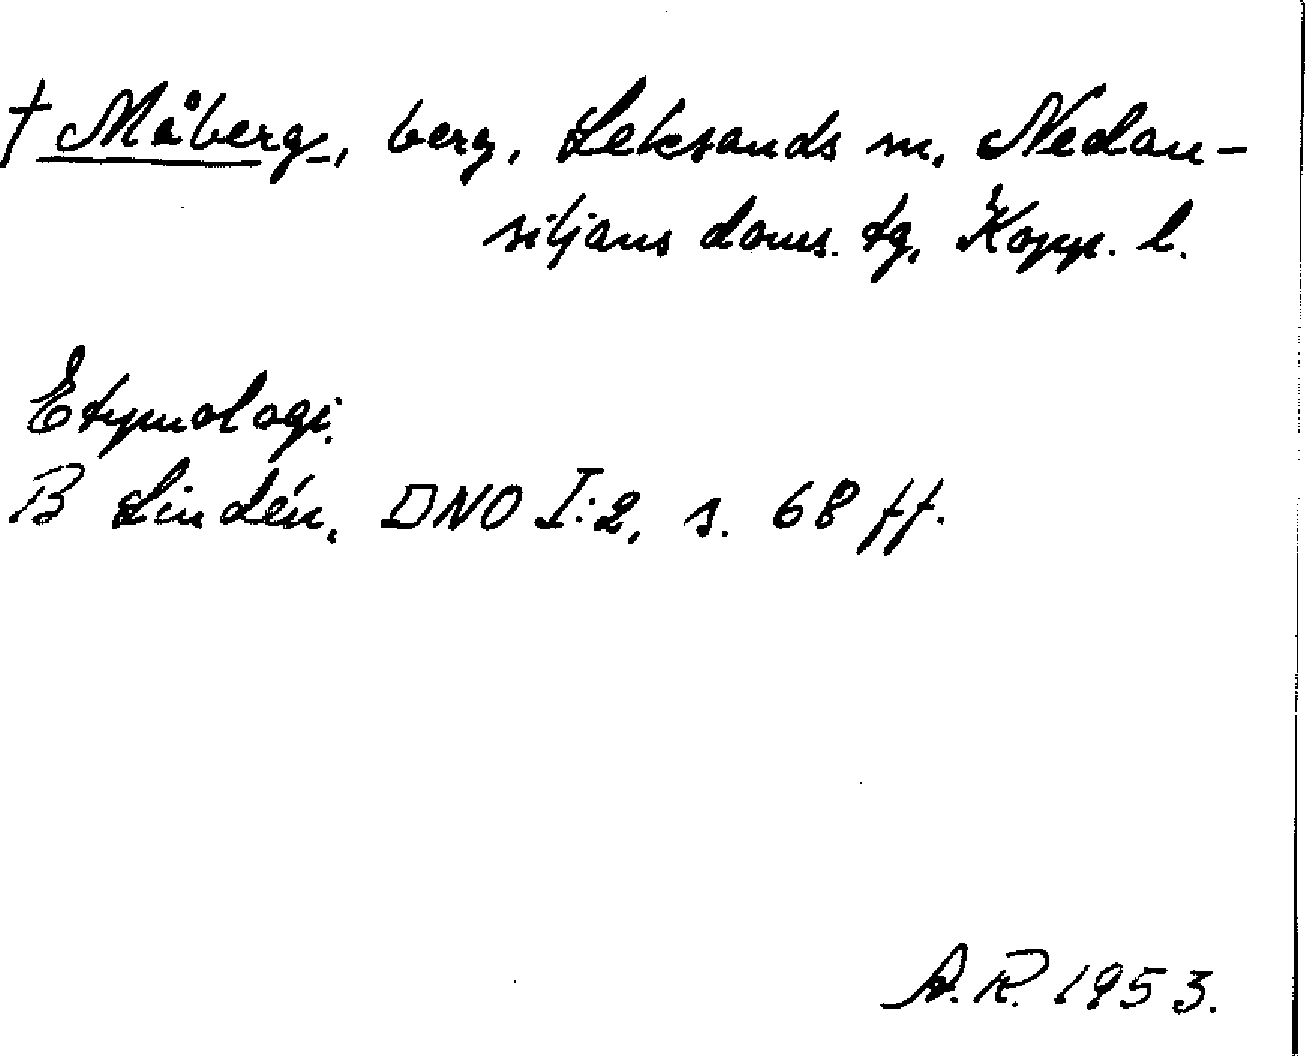 † Måberg, berg, Leksands sn, Nedan-
siljans doms. tg, Kopp. l.
Etymologi.
B Lindén, DNO I:2, s. 68 ff.
A.R. 1953.